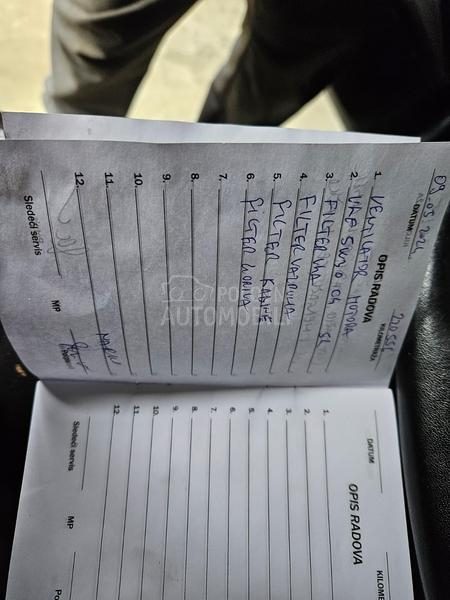 09.05.2024 220 555
DATUM KILOMETRAŽA
OPIS RADOVA
1. VENTILATOR MOTORA
2. ULJE 5W30 C4 5L
3. FILTER ULJA
4. FILTER VAZDUHA
5. FILTER KABINE
6. FILTER GORIVA
7.
8.
9.
10.
11.
12.
Sledeći servis MP
POLOVNI
AUTOMOBILI
DATUM KILOME
OPIS RADOVA
1.
2.
3.
4.
5.
6.
7.
8.
9.
10.
11.
12.
Sledeći servis MP Po